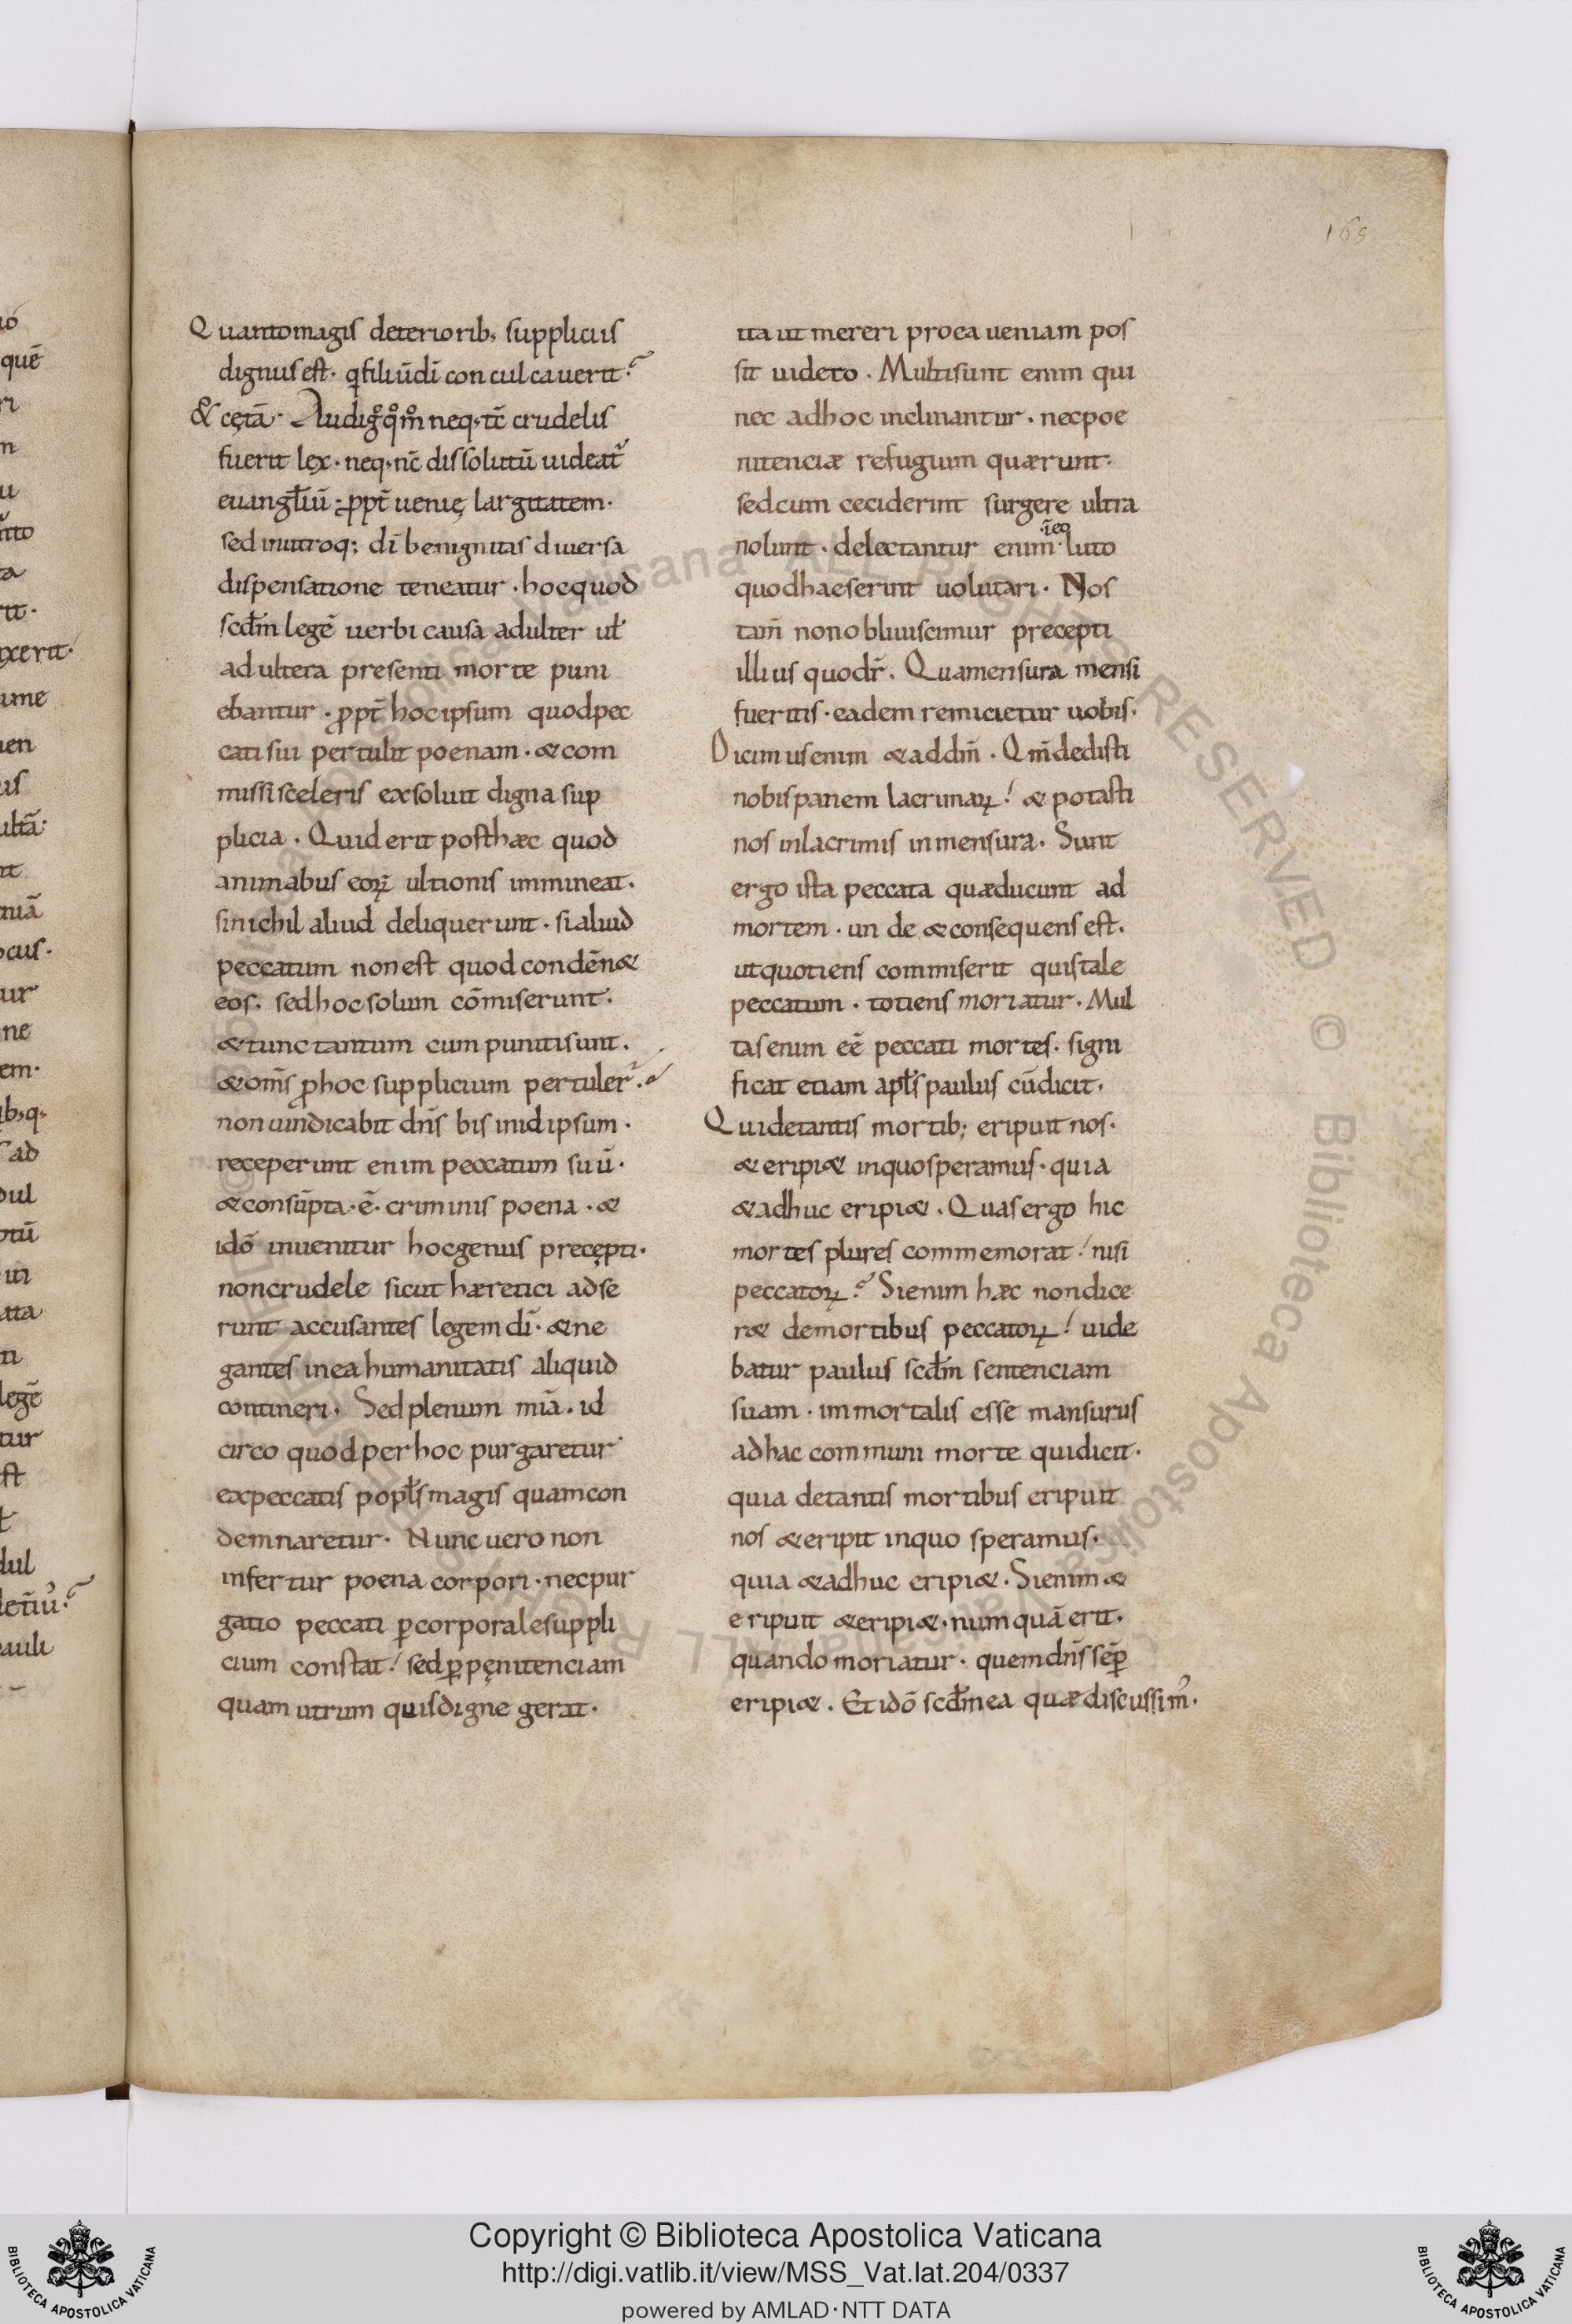 165
Quantomagis deteriorib; suppliciis
dignus est· q filiū dī conculcauerit·
& cętā· Audi gͦ qͦmͦ neq; tc̄ crudelis
fuerit lex· neq; nc̄ dissolutū uideat᷑
euangłiū· ꝓpt̄ uenię largitatem·
sed inutroq; dī benignitas diuersa
dispensatione teneatur· hocquod
scđm legē uerbi causa adulter uł
adultera presenti morte puni
ebantur· ꝓpt̄ hocipsum quodpec
cati sui pertulit poenam· & com
missi sceleris exsoluit digna sup
plicia· Quid erit posthæc quod
animabus eoꝝ ultionis immineat·
sinichil aliud deliquerunt· si aliud
peccatum non est quod condēn&
eos· sed hoc solum cōmiserunt·
& tunc tantum cum puniti sunt·
& om̄s ꝓhoc supplicium pertuler̄·
non uindicabit dn̄s bis inidipsum·
receperunt enim peccatum suū·
& consūpta· ē· criminis poena· &
idō inuenitur hocgenus precępti·
noncrudele sicut hæretici adse
runt accusantes legem dī· & ne
gantes inea humanitatis aliquid
contineri· Sed plenum mīa· id
circo quod per hoc purgaretur
expeccatis popłs magis quamcon
demnaretur· Nunc uero non
infertur poena corpori· necpur
gatio peccati ꝑcorporalesuppli
cium constat! sed ꝑ pęnitenciam
quam utrum quisdigne gerat·
ita ut mereri proea ueniam pos
sit uideto· Multisunt enim qui
nec adhoc inclinantur· necpoe
nitenciæ refugium quærunt·
sedcum ceciderint surgere ultra
·īeo
nolunt· delectantur enim· luto
quodhaeserint uolutari· Nos
tam̄ nonobliuiscimur precepti
illius quodr̄· Quamensura mensi
fueritis· eadem remicietur uobis·
Dicimusenim & addm̄· Qm̄dedisti
nobispanem lacrimaꝝ! & potasti
nos inlacrimis inmensura· Sunt
ergo ista peccata quæducunt ad
mortem· unde & consequens est·
utquotiens commiserit quistale
peccatum· totiens moriatur· Mul
tasenim eē peccati mortes· signi
ficat etiam apłs paulus cūdicit·
Quidetantis mortib; eripuit nos·
& eripi& inquosperamus· quia
& adhuc eripi&· Quasergo hic
mortes plures commemorat! nisi
peccatoꝝ? Sienim hæc nondice
r& demortibus peccatoꝝ! uide
batur paulus scđm sentenciam
suam· immortalis esse mansurus
adhac communi morte quidicit·
quia detantis mortibus eripuit
nos & eripit inquo speramus·
quia & adhuc eripi&· Sienim &
eripuit & eripi&· numquā erit·
quando moriatur· quemdn̄s sēꝑ
eripi&· Et idō scđmea quædiscussim᷒·
Copyright © Biblioteca Apostolica Vaticana
http://digi.vatlib.it/view/MSS_Vat.lat.204/0337
powered by AMLAD·NTT DATA